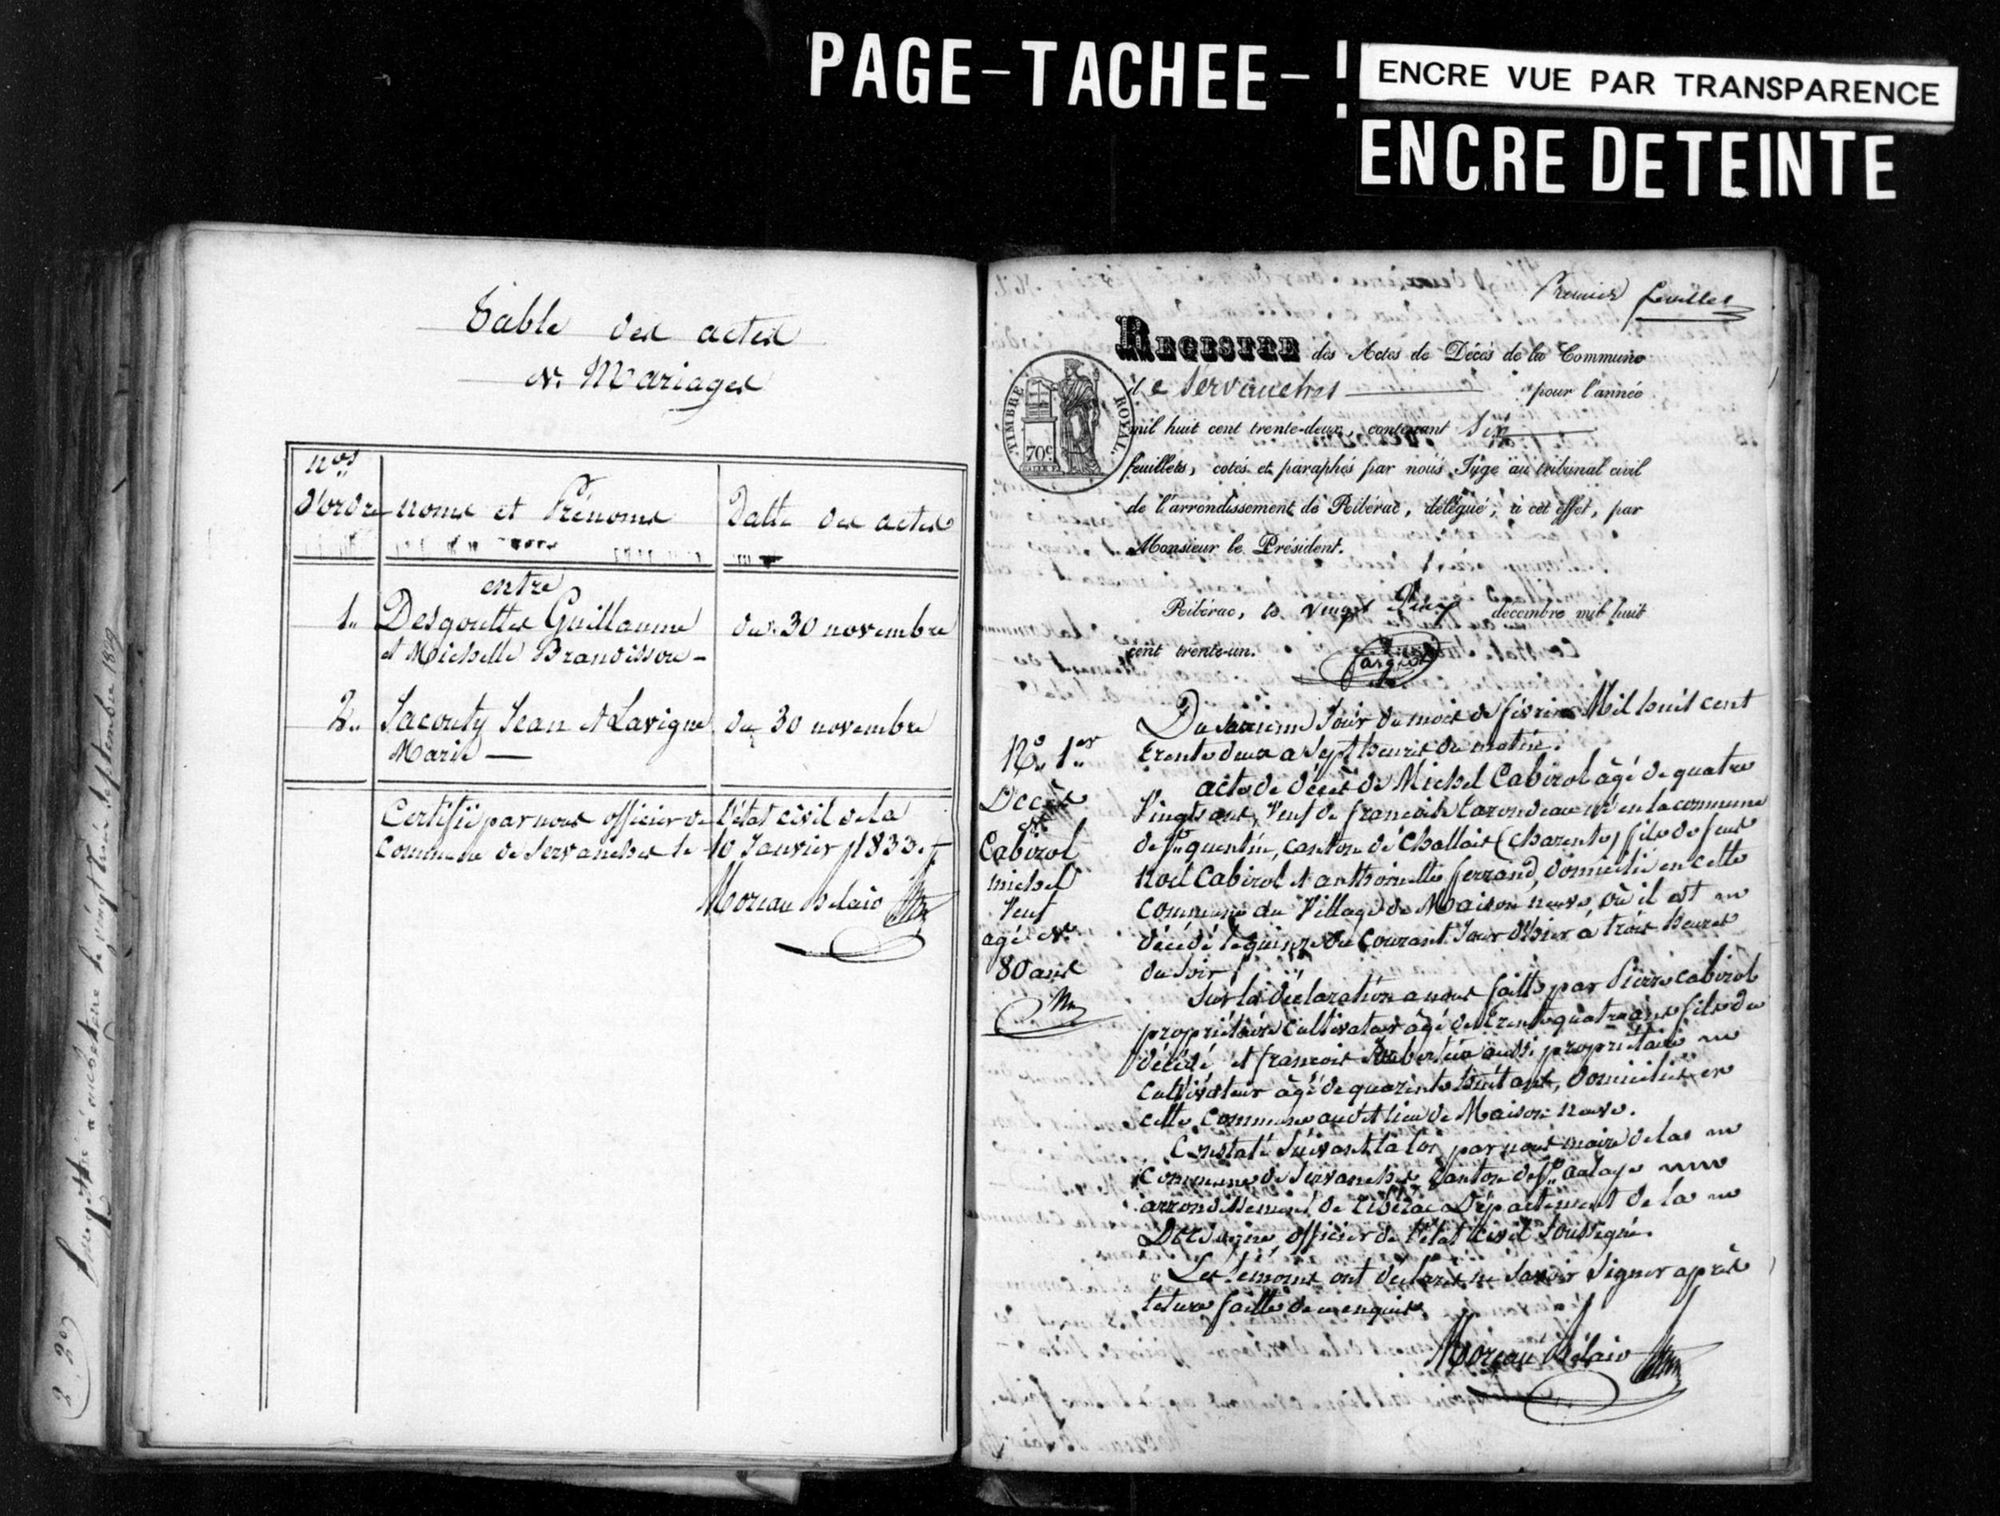 PAGE-TACHEE-!
ENCRE VUE PAR TRANSPARENCE
ENCRE DETEINTE
Table des actes
de Mariages
nos
d'ordre
noms et Prénoms
Datte des actes
entre
1.. Desgouttes Guillaume
et Michelle Brandissou -
du 30 novembre
2.. Lacouty Jean et Lavigne
Marie —
du 30 novembre
Certifié par nous officier de l'état civil de la
Commune de Servanches le 10 Janvier 1833.
Moreau Belair
Premier feuillet
REGISTRE des Actes de Décès de la Commune
de Servanches pour l'année
mil huit cent trente-deux, contenant Six
feuillets, cotés et paraphés par nous Juge au tribunal civil
de l'arrondissement de Ribérac, délégué, à cet effet, par
Monsieur le Président.
TIMBRE ROYAL
70c
Ribérac, le vingt décembre mil huit
cent trente-un.
No. 1er
Décès
Cabirol
michel
Veuf
agé de
80 ans
Du jour du mois de février Mil huit cent
trente deux a Sept heures du matin.
acte de décès de Michel Cabirol âgé de quatre
Vingts ans, Veuf de françoise né en la commune
de St quentin, canton de Challais (Charente) fils de feus
Noel Cabirol et anthoinette ferrand, domicilié en cette
commune au Village de Maison neuve, où il est
décédé le quinze du Courant Jour d'hier à trois heures
du Soir
Sur la déclaration a nous faitte par Pierre Cabirol
propriétaire Cultivateur âgé de trente quatre ans fils du
décédé et francois aussi propriétaire
Cultivateur âgé de quarante huit ans, domiciliés en
cette Commune audit lieu de Maison neuve.
Constaté Suivant la loi par nous maire de la
Commune de Servanches Canton de St aulaye
arrondissement de ribérac Département de la
Dordogne officier de l'état Civil Soussigné.
Les témoins ont déclaré ne Savoir Signer après
lecture faitte de ce enquis
Moreau Bélair